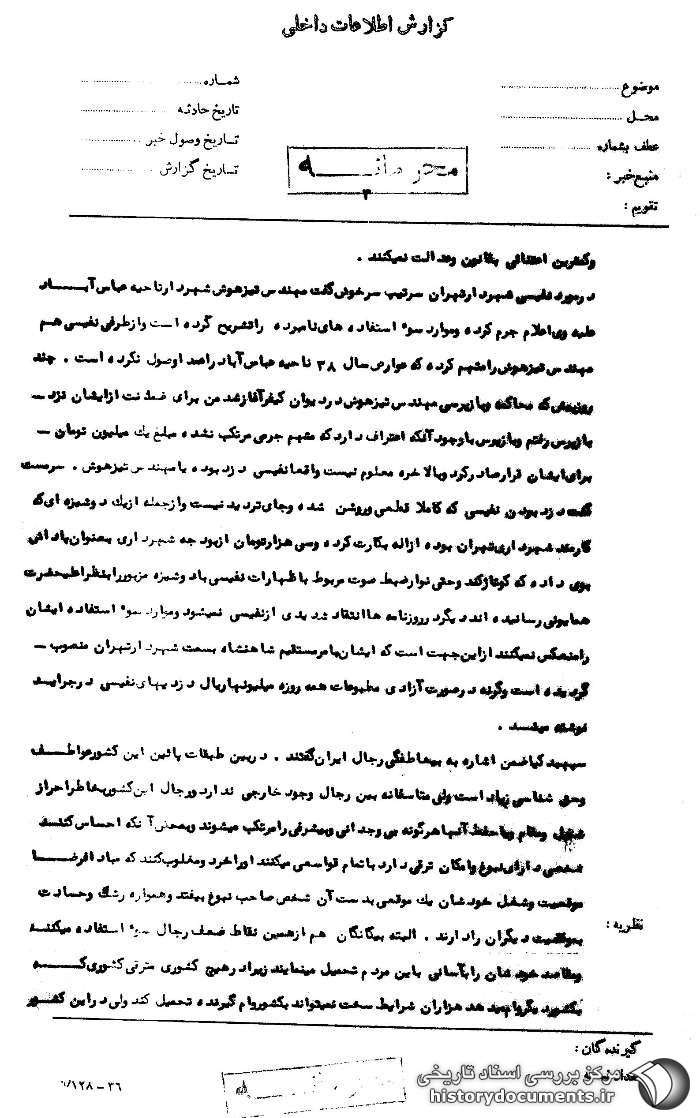 گزارش اطلاعات داخلی
موضوع
شماره
محل
تاریخ حادثه
عطف بشماره
تاریخ وصول خبر
منبع خبر :
تاریخ گزارش
محرمانه
تقویم :
۳
وکمترین اعتنائی بقانون وعدالت نمیکنند .
درمورد نفیسی شهردارتهران سرتیپ سرخوش گفت مهندس تیزهوش شهردارناحیه عباس آباد
علیه وی اعلام جرم کرده وموارد سوء استفاده های نامبرده راتشریح کرده است وازطرفی نفیسی هم
مهندس تیزهوش رامتهم کرده که عوارض سال ۳۸ ناحیه عباس آباد راعمداوصول نکرده است . چند
روزپیش که محاکمه وبازپرسی مهندس تیزهوش دردیوان کیفرآغازشد من برای ضمانت ازایشان نزد ــ
بازپرس رفتم وبازپرس باوجودآنکه اعتراف داردکه متهم جرمی مرتکب نشده مبلغ یك میلیون تومان ــ
برای ایشان قرارصادرکرد وبالاخره معلوم نیست واقعا نفیسی دزد بوده یامهندس تیزهوش . سرمست
گفت دزد بودن نفیسی که کاملا قطعی وروشن شده وجای تردید نیست وازجمله ازیك دوشیزه ای که
کارمند شهرداری تهران بوده ازاله بکارت کرده وسی هزارتومان ازبودجه شهرداری بعنوان پاداش
بوی داده که کورتاژکند وحتی نوارضبط صوت مربوط باظهارات نفیسی بادوشیزه مزبوررابنظراعلیحضرت
همایونی رسانیده اند دیگردرروزنامه هاانتقاد شدیدی ازنفیسی نمیشود وموارد سوء استفاده ایشان
رامنعکس نمیکنند ازاین جهت است که ایشان بامرمستقیم شاهنشاه بسمت شهردارتهران منصوب ــ
گردیده است وگرنه درصورت آزادی مطبوعات همه روزه میلیونهاریال دزدیهای نفیسی درجراید
نوشته میشد .
سپهبد کیاضمن اشاره به بیعاطفگی رجال ایران گفتند . دربین طبقات پائین این کشورعواطف
وحق شناسی زیاد است ولی متاسفانه بین رجال وجود خارجی ندارد ورجال این کشوربخاطراحراز
شغل ومقام ویاحفظ آنهاهرگونه بی وجدانی وبیشرفی رامرتکب میشوند وبمحض آنکه احساس کنند
شخصی دارای نبوغ وامکان ترقی دارد باتمام قوا سعی میکنند اوراخرد ومغلوب کنند که مبادافرضا
موقعیت وشغل خودشان یك موقعی بدست آن شخص صاحب نبوغ بیفتد وهمواره رشك وحسادت
بموقعیت دیگران رادارند . البته بیگانگان هم ازهمین نقاط ضعف رجال سوء استفاده میکنند
ومقاصد خودشان رابآسانی باین مردم تحمیل مینمایند زیرادرهیچ کشوری مترقی کشوری که
بکشوردیگروام میدهد هزاران شرایط سخت نمیتواند بکشوروام گیرنده تحمیل کند ولی دراین کشور
نظریه :
گیرندگان :
۳۶ – ۱۲۸
مرکز بررسی اسناد تاریخی
historydocuments.ir